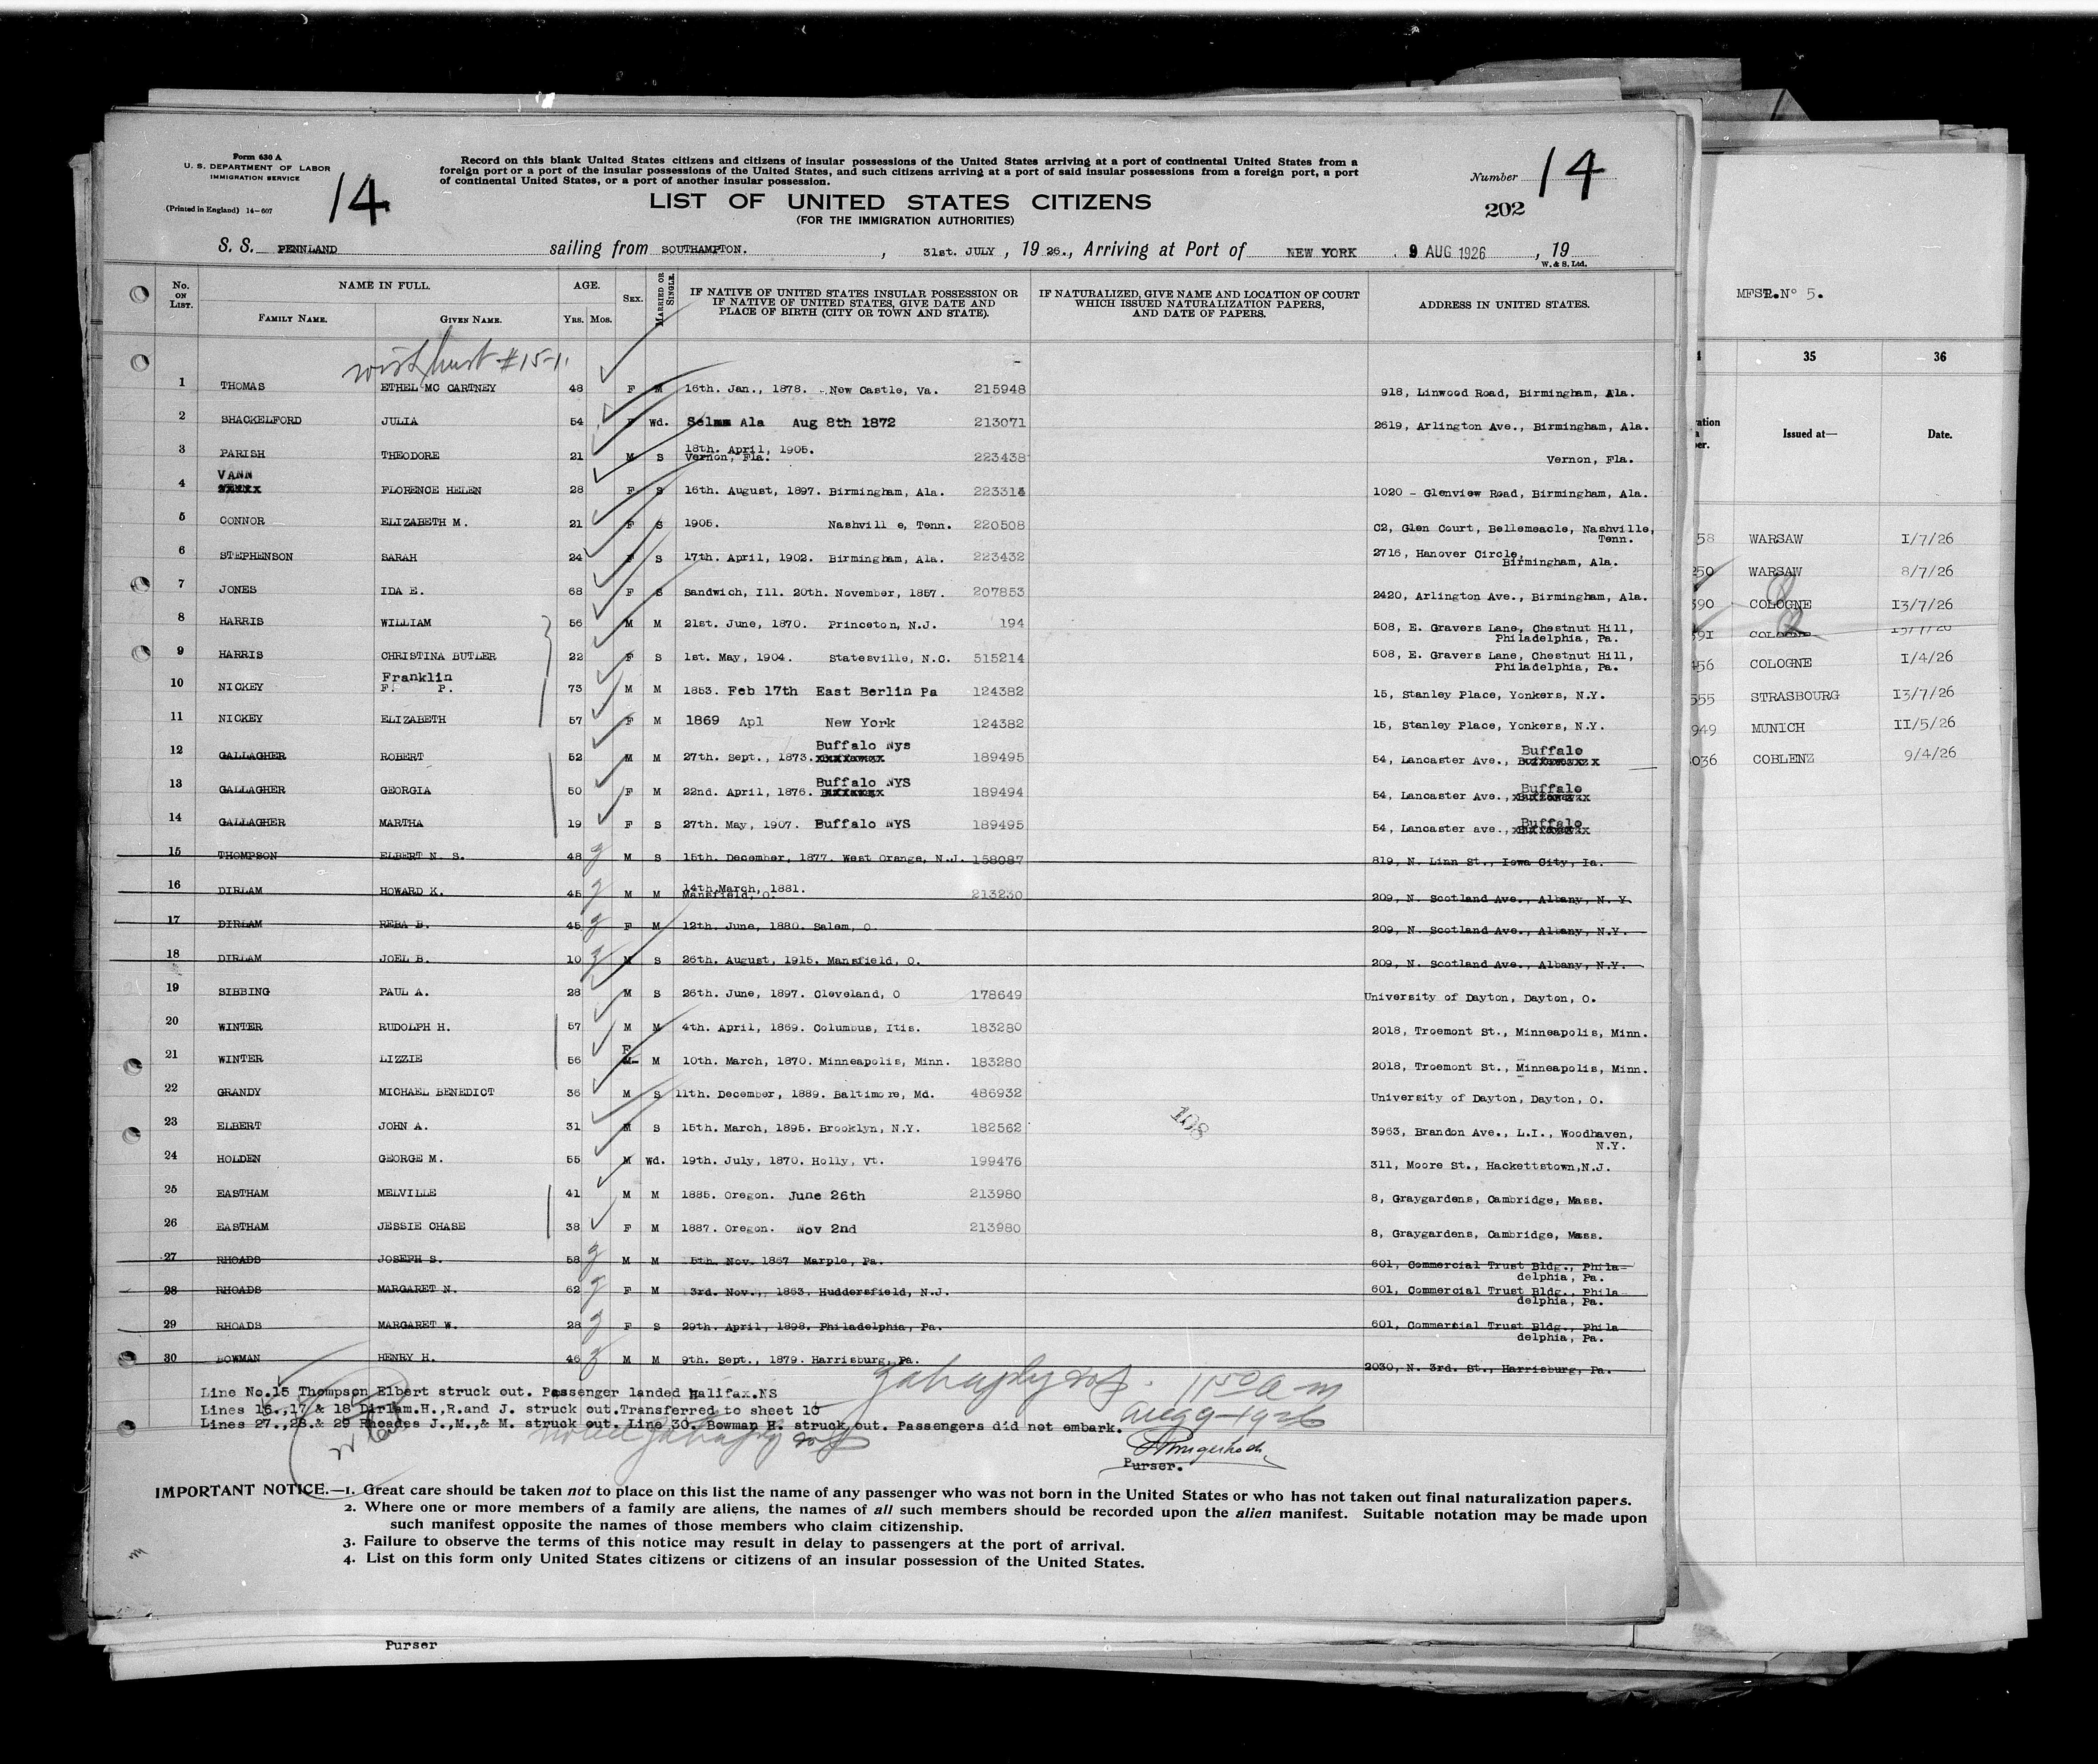 Form 630 A
U. S. DEPARTMENT OF LABOR
IMMIGRATION SERVICE
(Printed in England) 14-607
14
Record on this blank United States citizens and citizens of insular possessions of the United States arriving at a port of continental United States from a
foreign port or a port of the insular possessions of the United States, and such citizens arriving at a port of said insular possessions from a foreign port, a port
of continental United States, or a port of another insular possession.
LIST OF UNITED STATES CITIZENS
(FOR THE IMMIGRATION AUTHORITIES)
Number 14
202
S. S. PENNLAND sailing from SOUTHAMPTON. , 31st. JULY , 19 26., Arriving at Port of NEW YORK . 9 AUG 1926 , 19
W. & S. Ltd.
No. ON LIST. NAME IN FULL. FAMILY NAME. GIVEN NAME. AGE. YRS. MOS. SEX. MARRIED OR SINGLE. IF NATIVE OF UNITED STATES INSULAR POSSESSION OR IF NATIVE OF UNITED STATES, GIVE DATE AND PLACE OF BIRTH (CITY OR TOWN AND STATE). IF NATURALIZED, GIVE NAME AND LOCATION OF COURT WHICH ISSUED NATURALIZATION PAPERS, AND DATE OF PAPERS. ADDRESS IN UNITED STATES.
#15-1.
1 THOMAS ETHEL MC CARTNEY 48 F M 16th. Jan., 1878. - New Castle, Va. 215948 918, Linwood Road, Birmingham, Ala.
2 SHACKELFORD JULIA 54 F Wd. Selma Ala Aug 8th 1872 213071 2619, Arlington Ave., Birmingham, Ala.
3 PARISH THEODORE 21 M S 18th. April, 1905. Vernon, Fla. 223438 Vernon, Fla.
4 VANN FLORENCE HELEN 28 F S 16th. August, 1897. Birmingham, Ala. 223314 1020 - Glenview Road, Birmingham, Ala.
5 CONNOR ELIZABETH M. 21 F S 1905. Nashvill e, Tenn. 220508 C2, Glen Court, Bellemeacle, Nashville, Tenn.
6 STEPHENSON SARAH 24 F S 17th. April, 1902. Birmingham, Ala. 223432 2716, Hanover Circle, Birmingham, Ala.
7 JONES IDA E. 68 F S Sandwich, Ill. 20th. November, 1857. 207853 2420, Arlington Ave., Birmingham, Ala.
8 HARRIS WILLIAM 56 M M 21st. June, 1870. Princeton, N.J. 194 508, E. Gravers Lane, Chestnut Hill, Philadelphia, Pa.
9 HARRIS CHRISTINA BUTLER 22 F S 1st. May, 1904. Statesville, N.C. 515214 508, E. Gravers Lane, Chestnut Hill, Philadelphia, Pa.
10 NICKEY Franklin F. P. 73 M M 1853. Feb 17th East Berlin Pa 124382 15, Stanley Place, Yonkers, N.Y.
11 NICKEY ELIZABETH 57 F M 1869 Apl New York 124382 15, Stanley Place, Yonkers, N.Y.
12 GALLAGHER ROBERT 52 M M 27th. Sept., 1873. Buffalo Nys 189495 54, Lancaster Ave., Buffalo
13 GALLAGHER GEORGIA 50 F M 22nd. April, 1876. Buffalo NYS 189494 54, Lancaster Ave., Buffalo
14 GALLAGHER MARTHA 19 F S 27th. May, 1907. Buffalo NYS 189495 54, Lancaster ave., Buffalo
15 THOMPSON ELBERT N. S. 48 M S 15th. December, 1877. West Orange, N.J. 158087 819, N. Linn St., Iowa City, Ia.
16 DIRLAM HOWARD K. 45 M M 14th March, 1881. Mansfield, O. 213230 209, N. Scotland Ave., Albany, N. Y.
17 DIRLAM REBA B. 45 F M 12th. June, 1880. Salem, O. 209, N. Scotland Ave., Albany, N.Y.
18 DIRLAM JOEL B. 10 M S 26th. August, 1915. Mansfield, O. 209, N. Scotland Ave., Albany, N.Y.
19 SIBBING PAUL A. 28 M S 26th. June, 1897. Cleveland, O 178649 University of Dayton, Dayton, O.
20 WINTER RUDOLPH H. 57 M M 4th. April, 1869. Columbus, Itis. 183280 2018, Troemont St., Minneapolis, Minn.
21 WINTER LIZZIE 56 F M M 10th. March, 1870. Minneapolis, Minn. 183280 2018, Troemont St., Minneapolis, Minn.
22 GRANDY MICHAEL BENEDICT 36 M S 11th. December, 1889. Baltimore, Md. 486932 University of Dayton, Dayton, O.
23 ELBERT JOHN A. 31 M S 15th. March, 1895. Brooklyn, N.Y. 182562 3963, Brandon Ave., L.I., Woodhaven, N.Y.
108
24 HOLDEN GEORGE M. 55 M Wd. 19th. July, 1870. Holly, Vt. 199476 311, Moore St., Hackettstown, N.J.
25 EASTHAM MELVILLE 41 M M 1885. Oregon. June 26th 213980 8, Graygardens, Cambridge, Mass.
26 EASTHAM JESSIE CHASE 38 F M 1887. Oregon. Nov 2nd 213980 8, Graygardens, Cambridge, Mass.
27 RHOADS JOSEPH S. 58 M M 15th. Nov. 1867 Marple, Pa. 601, Commercial Trust Bldg., Phila- delphia, Pa.
28 RHOADS MARGARET N. 62 F M 3rd. Nov., 1863. Huddersfield, N.J. 601, Commercial Trust Bldg., Phila- delphia, Pa.
29 RHOADS MARGARET W. 28 F S 29th. April, 1898. Philadelphia, Pa. 601, Commercial Trust Bldg., Phila delphia, Pa.
30 BOWMAN HENRY H. 46 M M 9th. Sept., 1879. Harrisburg, Pa. 2030, N. 3rd. St., Harrisburg, Pa.
Line No.15 Thompson Elbert struck out. Passenger landed Halifax.NS
Lines 16.,17 & 18 Dirlam.H.,R.and J. struck out.Transferred to sheet 15
Lines 27.,28.& 29 Rhoades J.,M.,& M. struck out. Line 30. Bowman H. struck out. Passengers did not embark.
1150 a-m
aug 9-1926
Purser.
IMPORTANT NOTICE.—1. Great care should be taken not to place on this list the name of any passenger who was not born in the United States or who has not taken out final naturalization papers.
2. Where one or more members of a family are aliens, the names of all such members should be recorded upon the alien manifest. Suitable notation may be made upon
such manifest opposite the names of those members who claim citizenship.
3. Failure to observe the terms of this notice may result in delay to passengers at the port of arrival.
4. List on this form only United States citizens or citizens of an insular possession of the United States.
Purser
MFST. Nº 5.
35 36
Issued at— Date.
58 WARSAW I/7/26
250 WARSAW 8/7/26
390 COLOGNE I3/7/26
391 COLOGNE I3/7/26
456 COLOGNE I/4/26
555 STRASBOURG I3/7/26
949 MUNICH II/5/26
036 COBLENZ 9/4/26